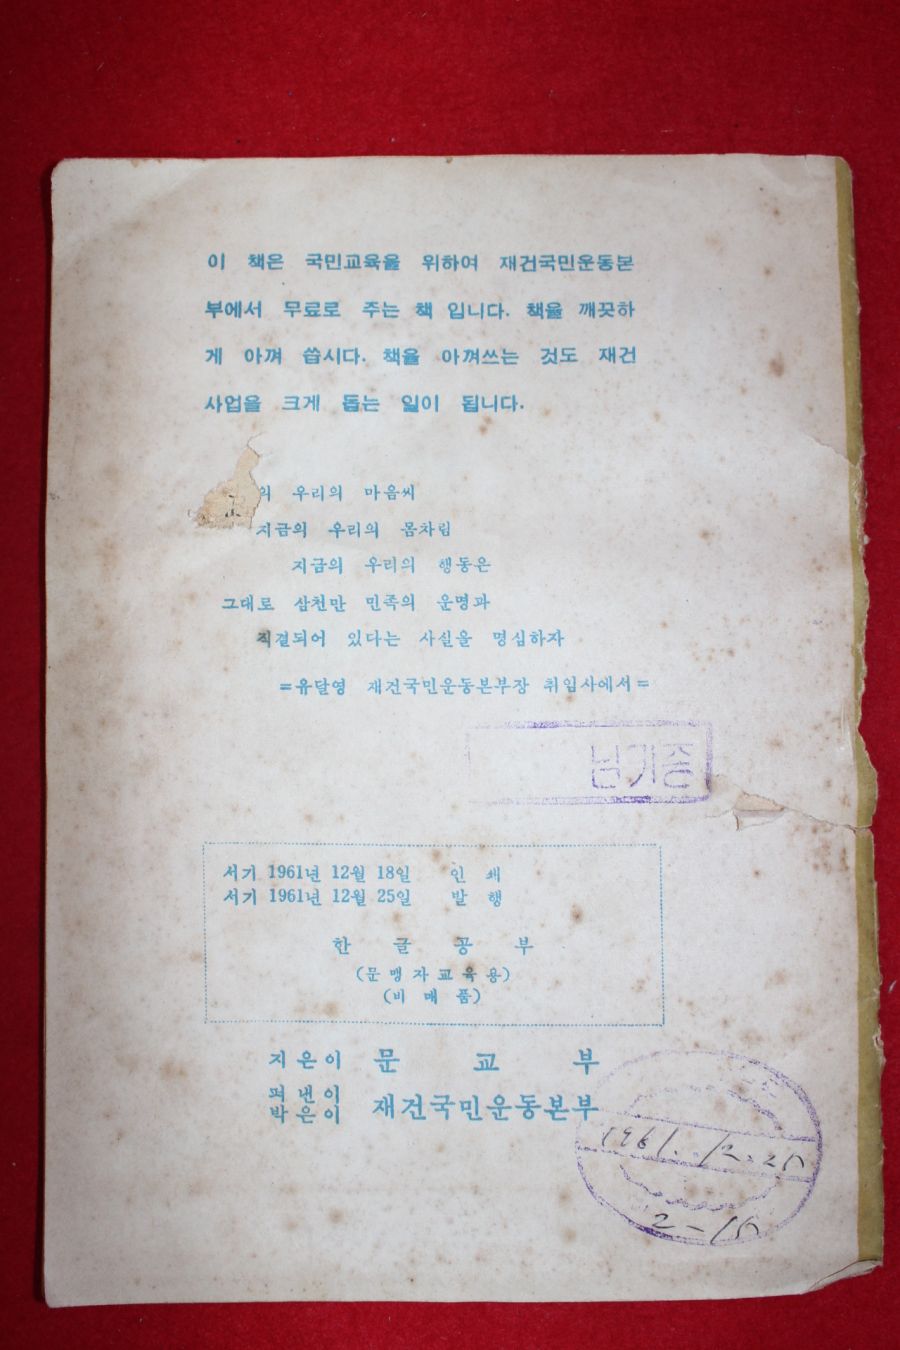 이 책은 국민교육을 위하여 재건국민운동본
부에서 무료로 주는 책 입니다. 책을 깨끗하
게 아껴 씁시다. 책을 아껴쓰는 것도 재건
사업을 크게 돕는 일이 됩니다.
의 우리의 마음씨
지금의 우리의 몸차림
지금의 우리의 행동은
그대로 삼천만 민족의 운명과
직결되어 있다는 사실을 명심하자
=유달영 재건국민운동본부장 취임사에서=
님기증
서기 1961년 12월 18일 인 쇄
서기 1961년 12월 25일 발 행
한 글 공 부
(문 맹 자 교 육 용)
(비 매 품)
지은이 문 교 부
펴낸이
박은이 재건국민운동본부
1961. 12. 2
2-1